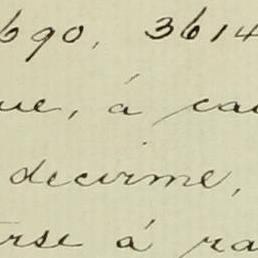 690, 3614
ue, á cau
decirme,
rse á ra